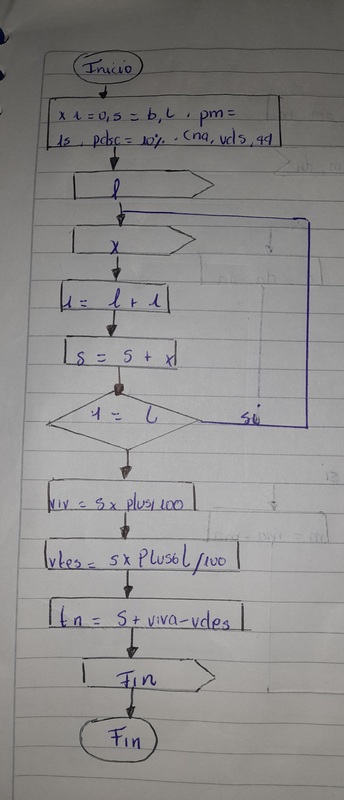 Inicio
x i = 0, s = b, l, pm =
1s, pdsc = 10%. Cna, vds, qq
l
x
i = l + 1
s = s + x
i = l
si
viv = s x plus/100
vtes = s x Plus6l/100
tn = s + viva - vdes
Fin
Fin